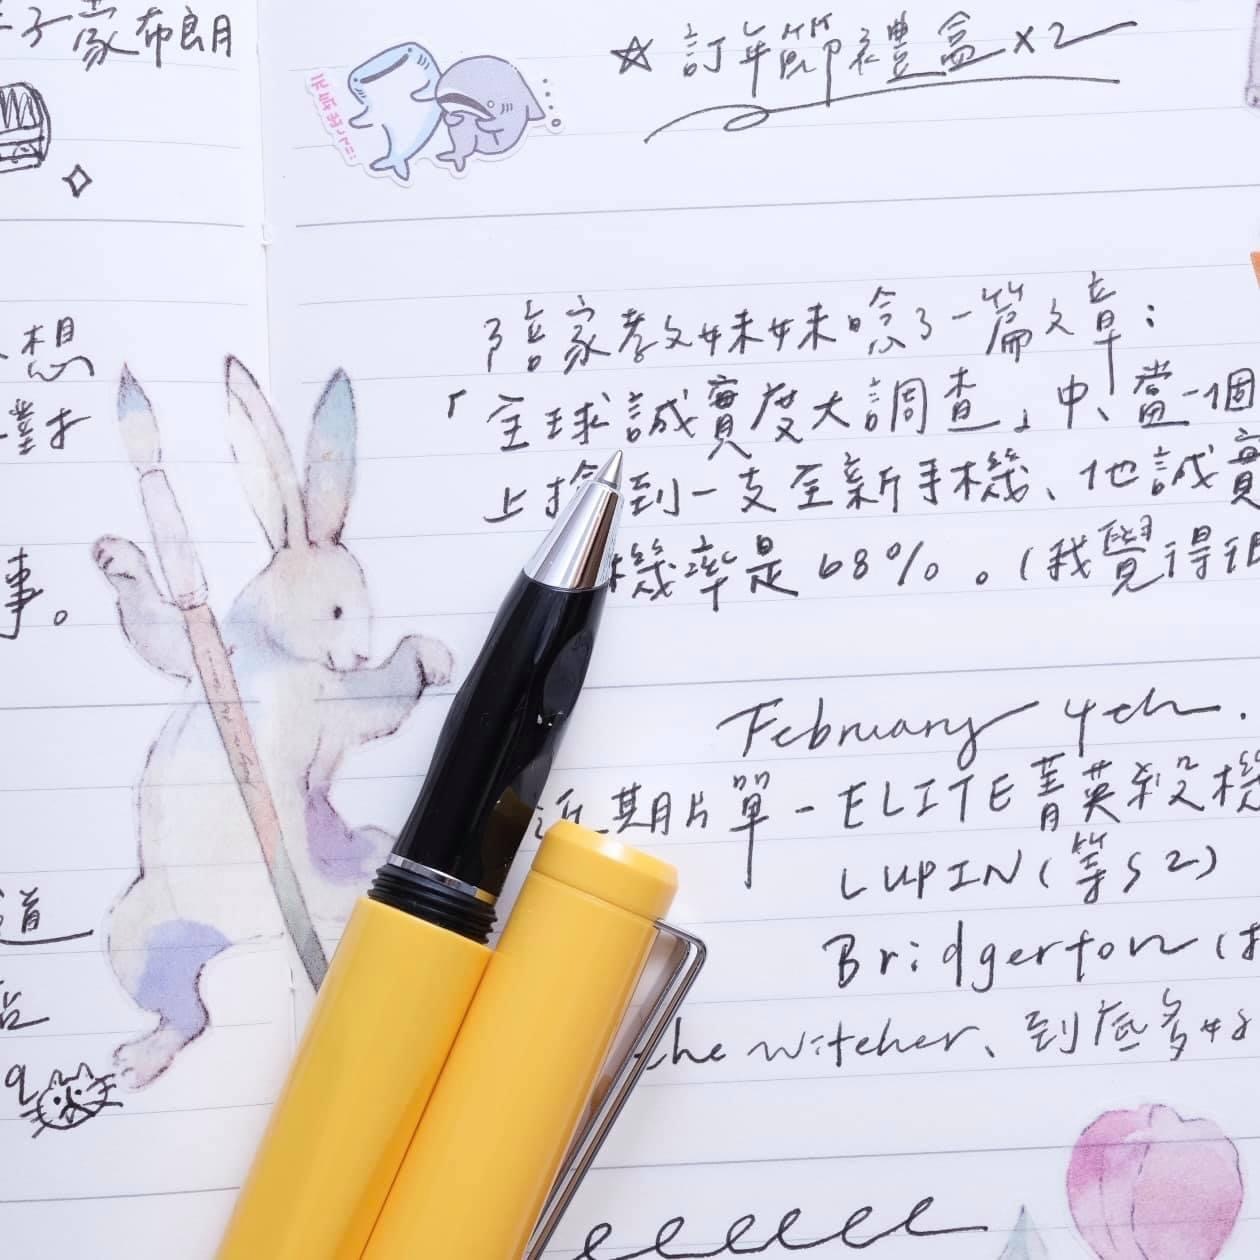 子蒙布朗
想
對才
事。
道
☆ 訂年節禮盒x2
陪家教妹妹唸了一篇文章：
「全球誠實度大調查」中、當一個
上撿到一支全新手機、他誠實
機率是68%。(我覺得很
February 4th.
近期片單-ELITE菁英殺機
LUPIN(等S2)
Bridgerton(
the witcher、到底多好